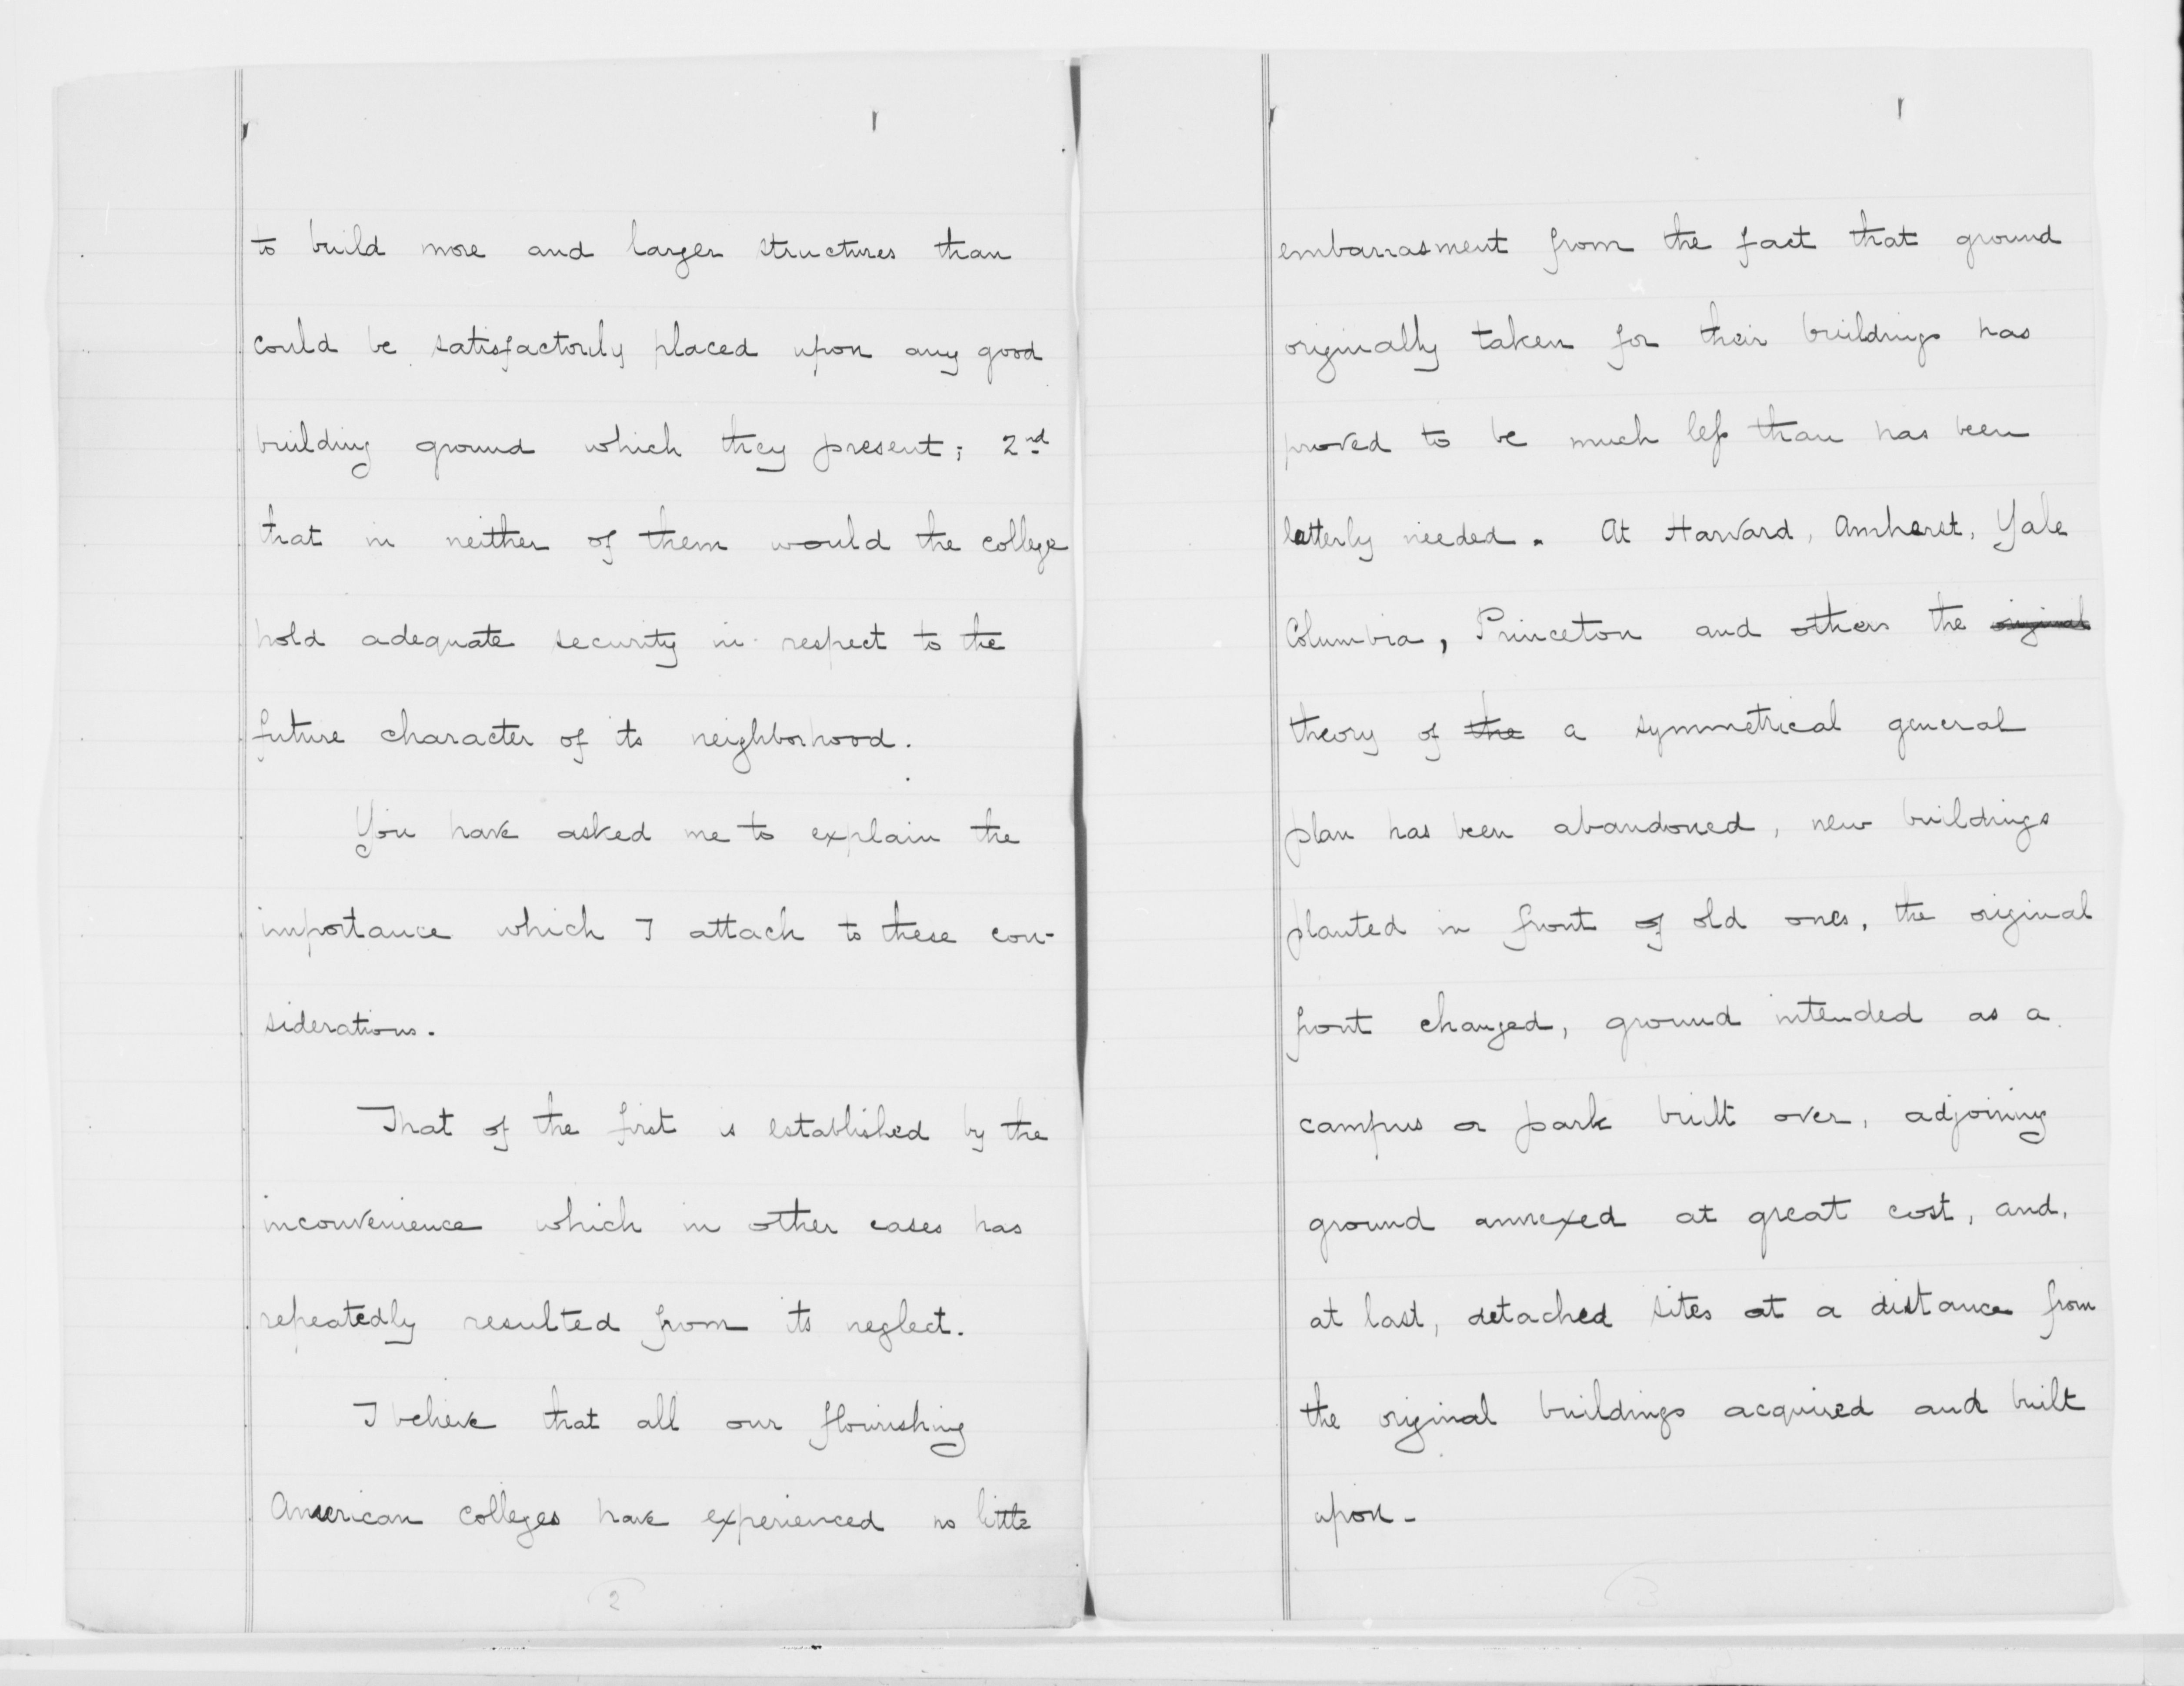 to build more and larger structures than
could be satisfactorily placed upon any good
building ground which they present; 2nd
that in neither of them would the college
hold adequate security in respect to the
future character of its neighborhood.
You have asked me to explain the
importance which I attach to these con-
siderations.
That of the first is established by the
inconvenience which in other cases has
repeatedly resulted from its neglect.
I believe that all our flourishing
American colleges have experienced no little
2
embarrasment from the fact that ground
originally taken for their buildings has
proved to be much less than has been
latterly needed. At Harvard, Amherst, Yale
Columbia, Princeton and others the original
theory of the a symmetrical general
plan has been abandoned, new buildings
planted in front of old ones, the original
front changed, ground intended as a
campus or park built over, adjoining
ground annexed at great cost, and,
at last, detached sites at a distance from
the original buildings acquired and built
upon-
3